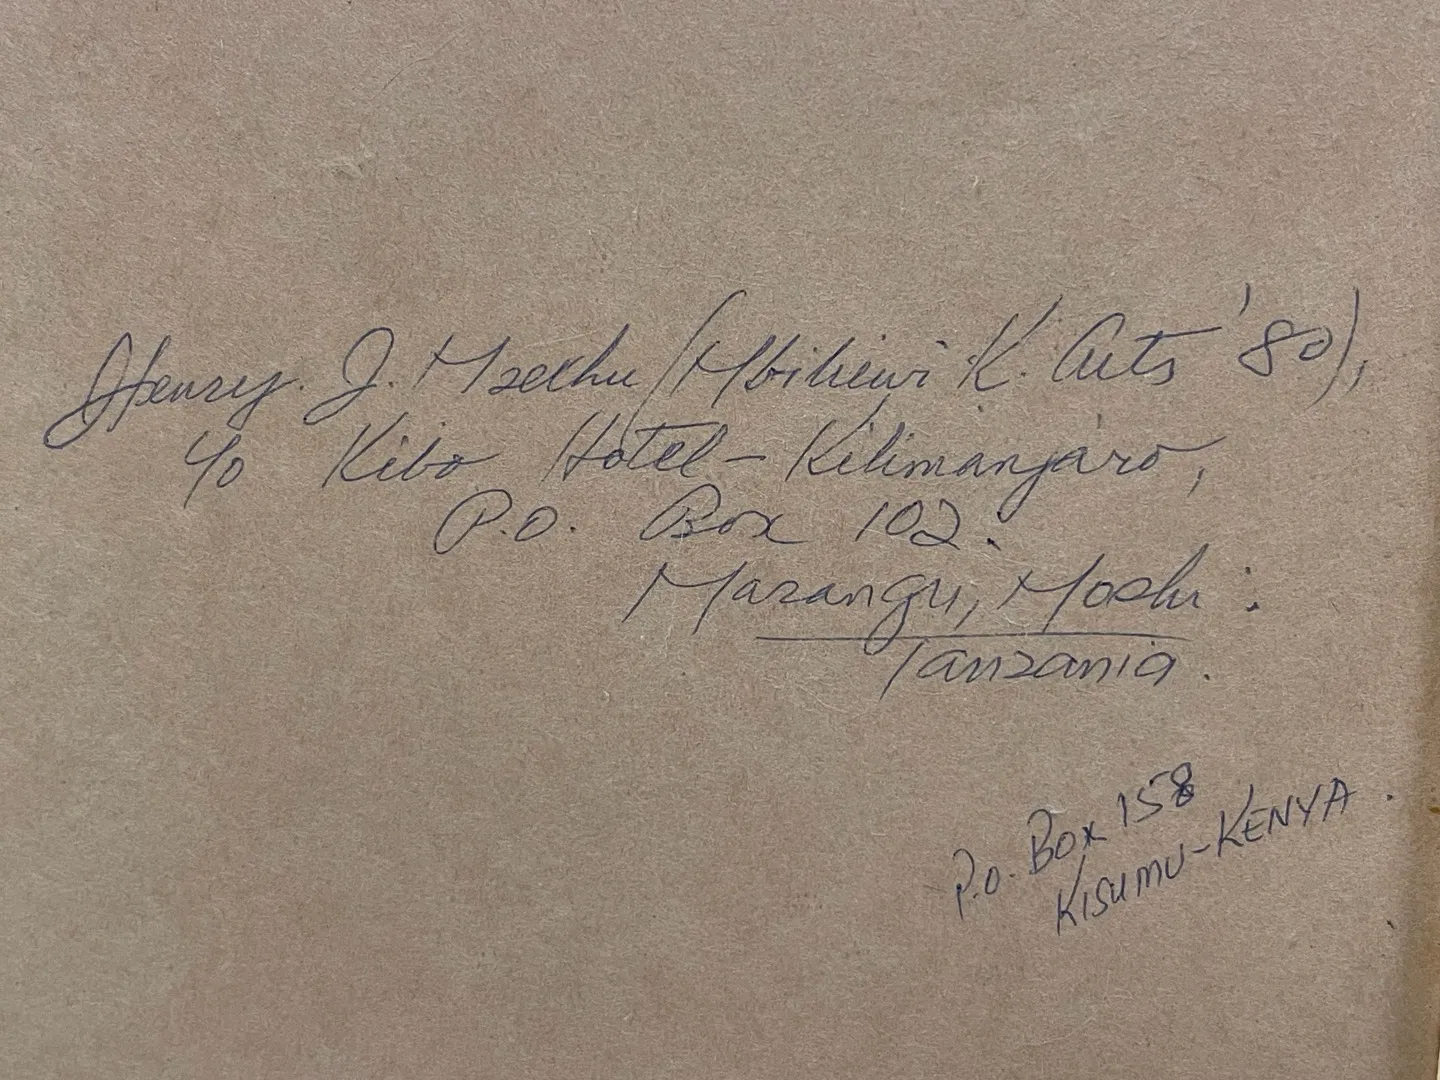 Henry. J. Mzechu (Mbihewi K. Arts '80),
c/o Kibo Hotel - Kilimanjaro,
P.O. Box 102.
Marangu, Moshi :
Tanzania.
P.O. Box 158
KISUMU-KENYA.